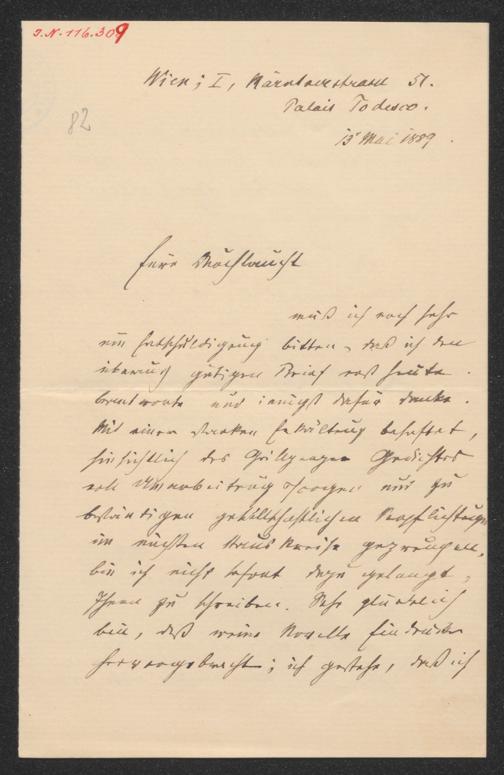 I.N. 116.309
82
Wien; I, Kärntnerstrasse 51.
Palais Todesco.
15 Mai 1889.
Eure Durchlaucht
muß ich noch sehr
um Entschuldigung bitten, daß ich den
überaus gütigen Brief erst heute
beantworte und innigst dafür danke.
Mit einer starken Erkältung behaftet,
hinsichtlich des Gedichtes
voll Umarbeitung und zu
beständigen gesellschaftlichen Verpflichtungen
im nächsten Hauskreise gezwungen,
bin ich nicht sofort dazu gelangt,
Ihnen zu schreiben. Sehr glücklich
bin, daß meine Novelle Eindruck
hervorgebracht; ich gestehe, daß ich